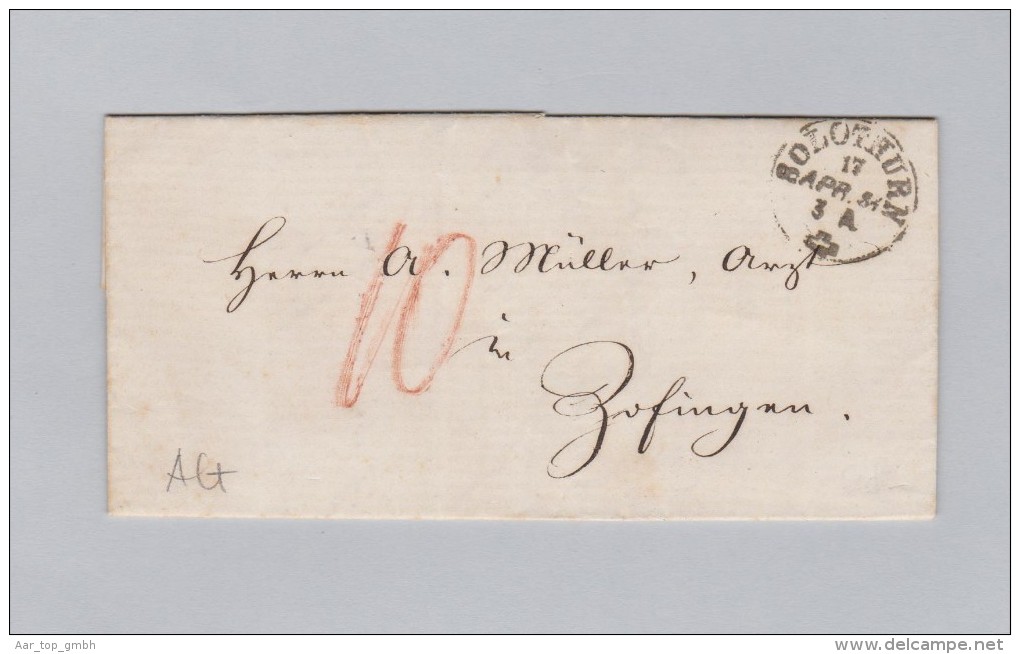 SOLOTHURN
17
APR. 54
3 A
Herrn A. Müller, Arzt
10
in
Zofingen.
Aar_top_gmbh
www.delcampe.net